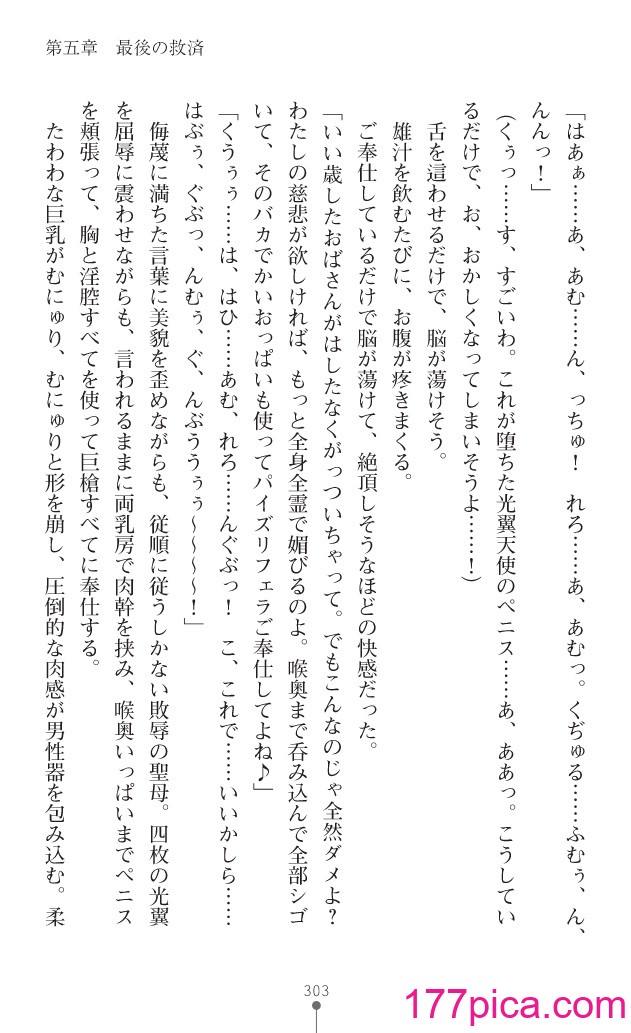 第五章　最後の救済
「はあぁ……あ、あむ……ん、っちゅ！　れろ……あ、あむっ。くぢゅる……ふむぅ、ん、
んんっ！」
（くぅっ……す、すごいわ。これが堕ちた光翼天使のペニス……あ、ああっ。こうしてい
るだけで、お、おかしくなってしまいそうよ……！）
舌を這わせるだけで、脳が蕩けそう。
雄汁を飲むたびに、お腹が疼きまくる。
ご奉仕しているだけで脳が蕩けて、絶頂しそうなほどの快感だった。
「いい歳したおばさんがはしたなくがっついちゃって。でもこんなのじゃ全然ダメよ？
わたしの慈悲が欲しければ、もっと全身全霊で媚びるのよ。喉奥まで呑み込んで全部シゴ
いて、そのバカでかいおっぱいも使ってパイズリフェラご奉仕してよね♪」
「くうぅぅ……は、はひ……あむ、れろ……んぐぶっ！　こ、これで……いいかしら……
はぶぅ、ぐぶっ、んむぅ、ぐ、んぶううぅぅ～～～～！」
侮蔑に満ちた言葉に美貌を歪めながらも、従順に従うしかない敗辱の聖母。四枚の光翼
を屈辱に震わせながらも、言われるままに両乳房で肉幹を挟み、喉奥いっぱいまでペニス
を頬張って、胸と淫腔すべてを使って巨槍すべてに奉仕する。
たわわな巨乳がむにゅり、むにゅりと形を崩し、圧倒的な肉感が男性器を包み込む。柔
303
177pica.com